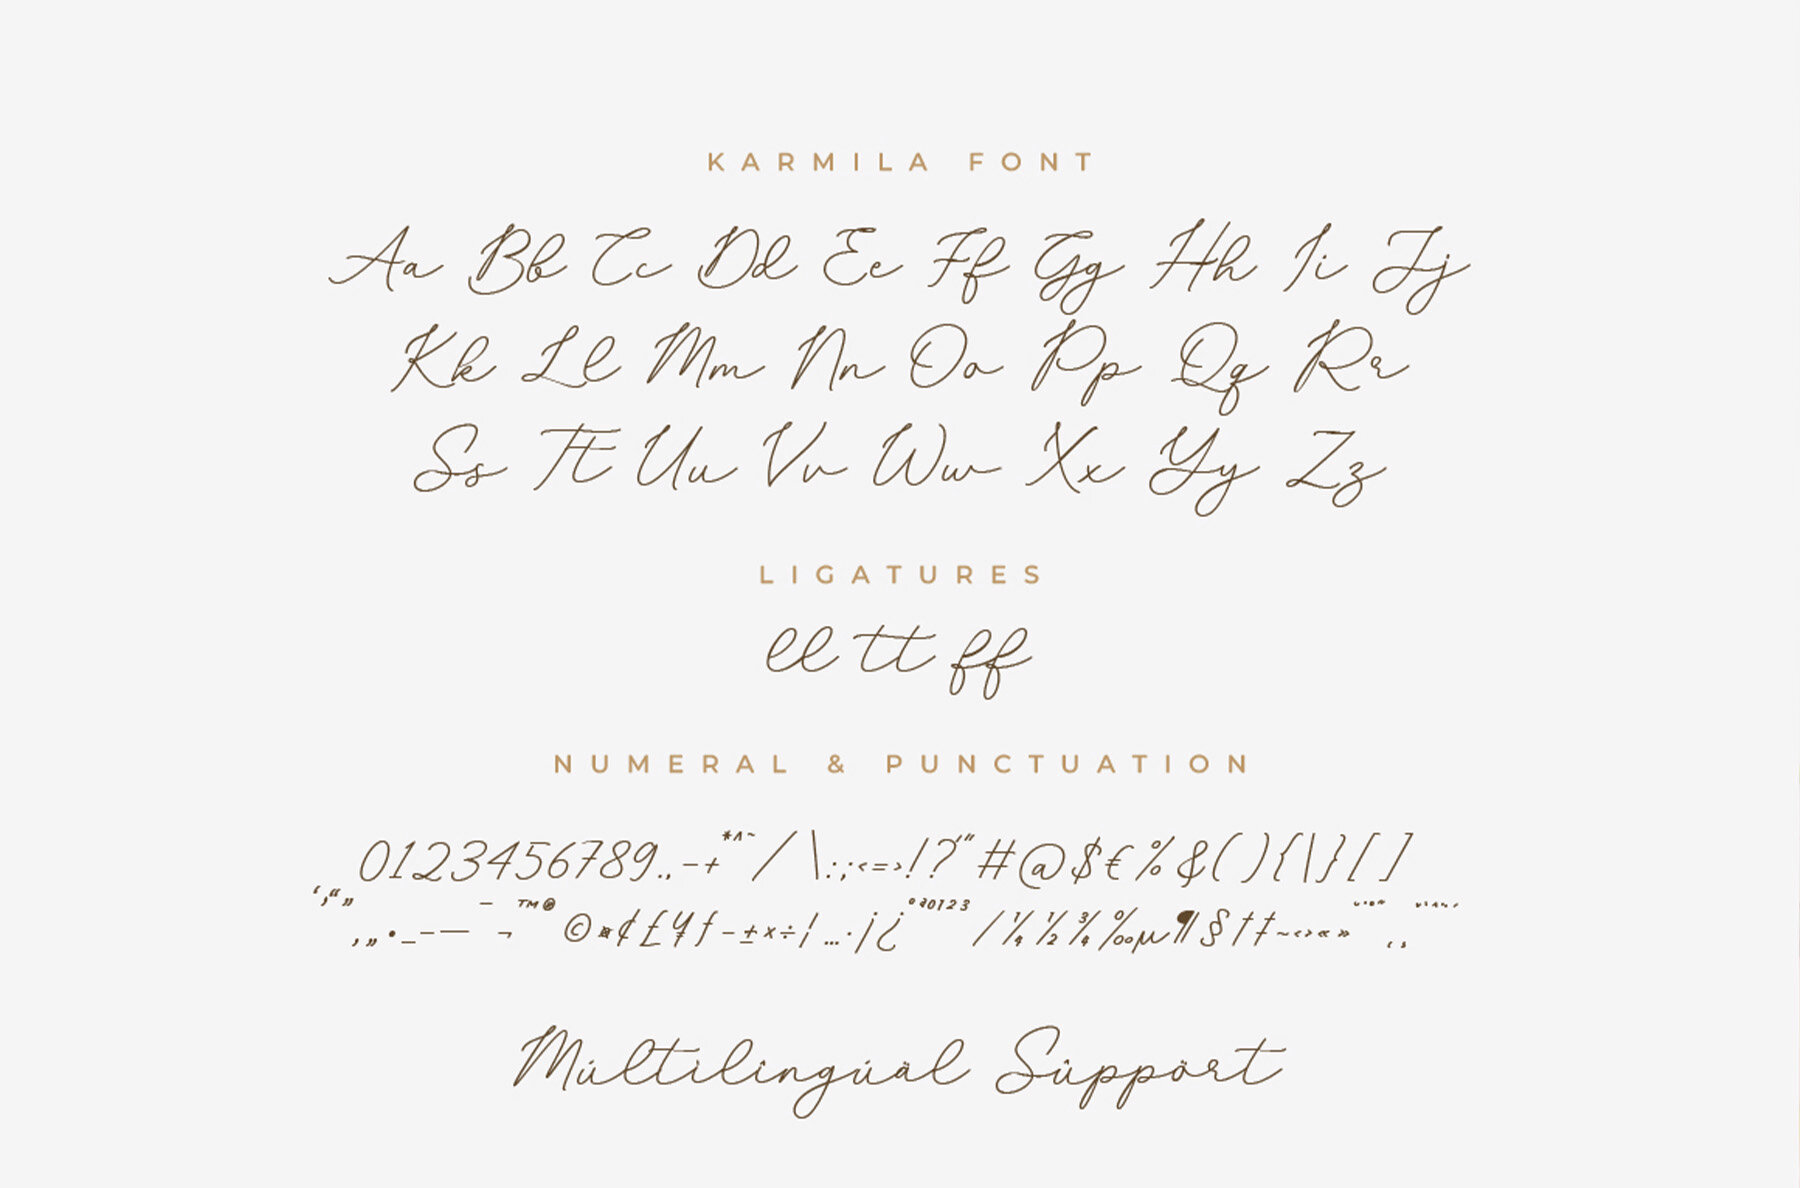 KARMILA FONT
Aa Bb Cc Dd Ee Ff Gg Hh Ii Jj
Kk Ll Mm Nn Oo Pp Qq Rr
Ss Tt Uu Vv Ww Xx Yy Zz
LIGATURES
ll tt ff
NUMERAL & PUNCTUATION
0123456789.,-+*^~/\:;<=>!?'"#@$€%&(){|}[]
‘,“”‚„•_–—¯¬™®©¤¢£¥ƒ-±×÷¦…·¡¿ºª0123/¼½¾‰µ¶§†‡~‹›«»
Múltìlîngúäl Sûppört